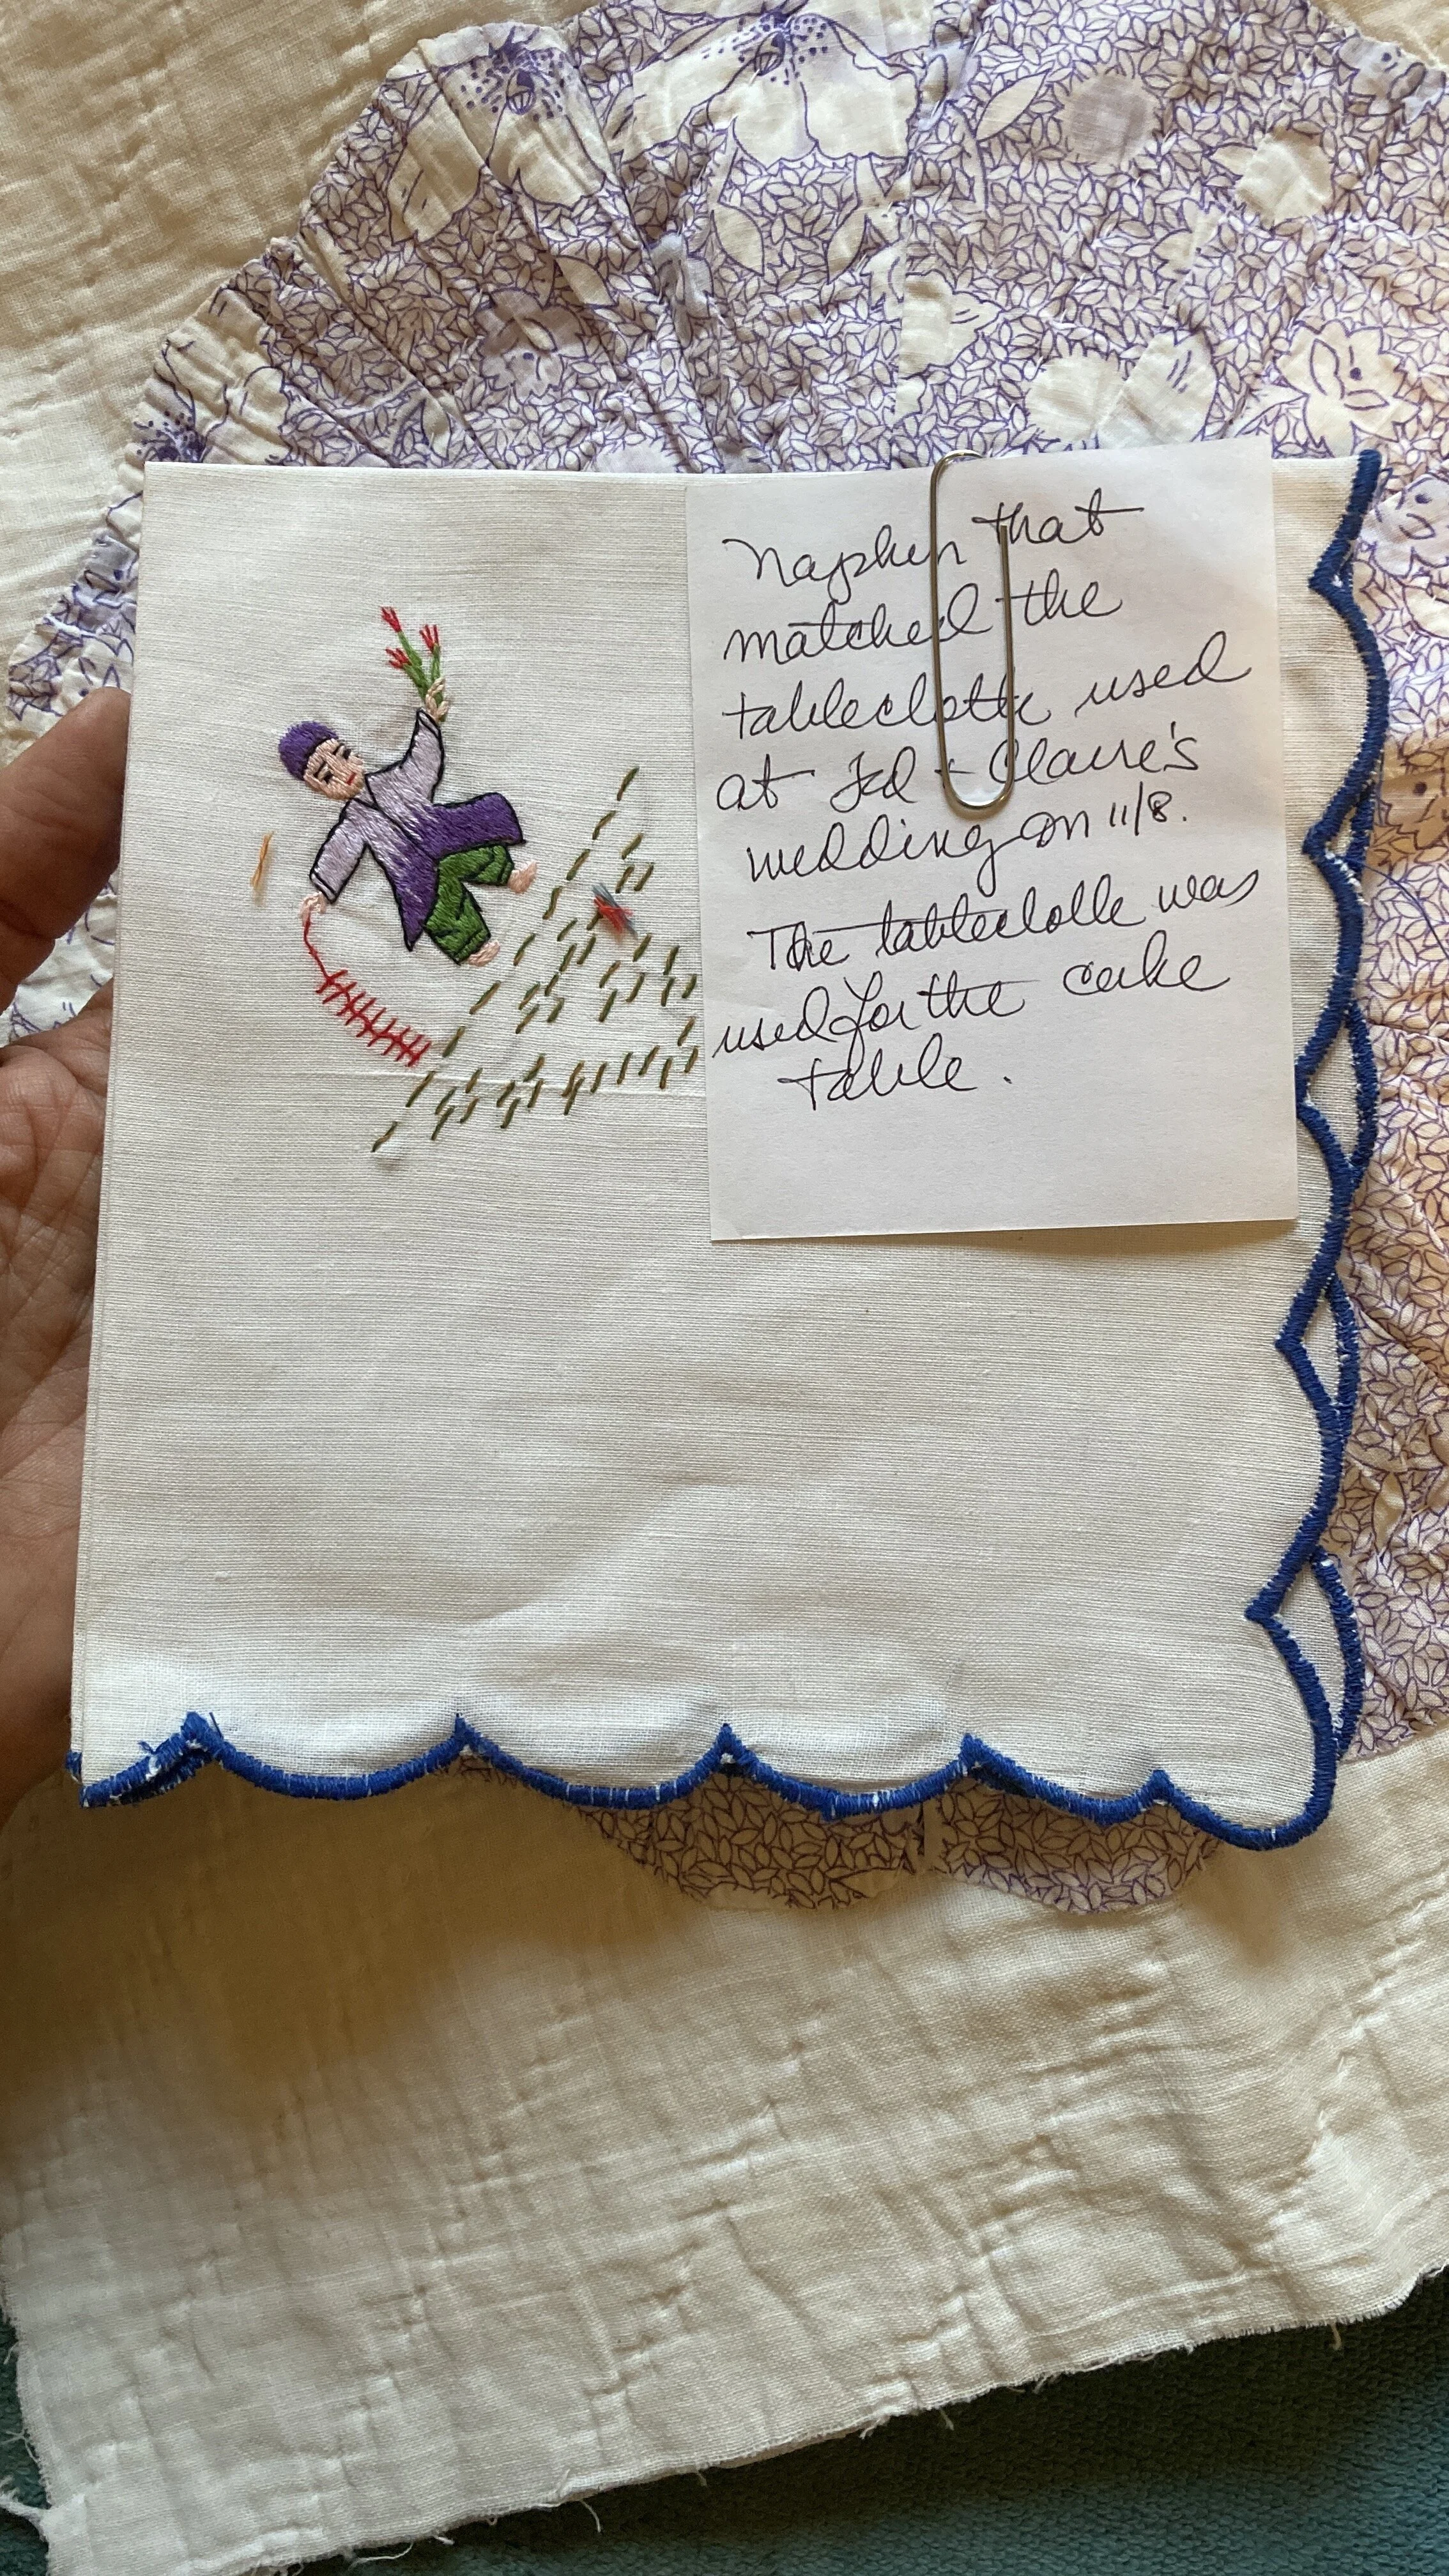 Napkin that
matched the
tablecloth used
at Ted + Claire's
wedding on 11/8.
The tablecloth was
used for the cake
table.